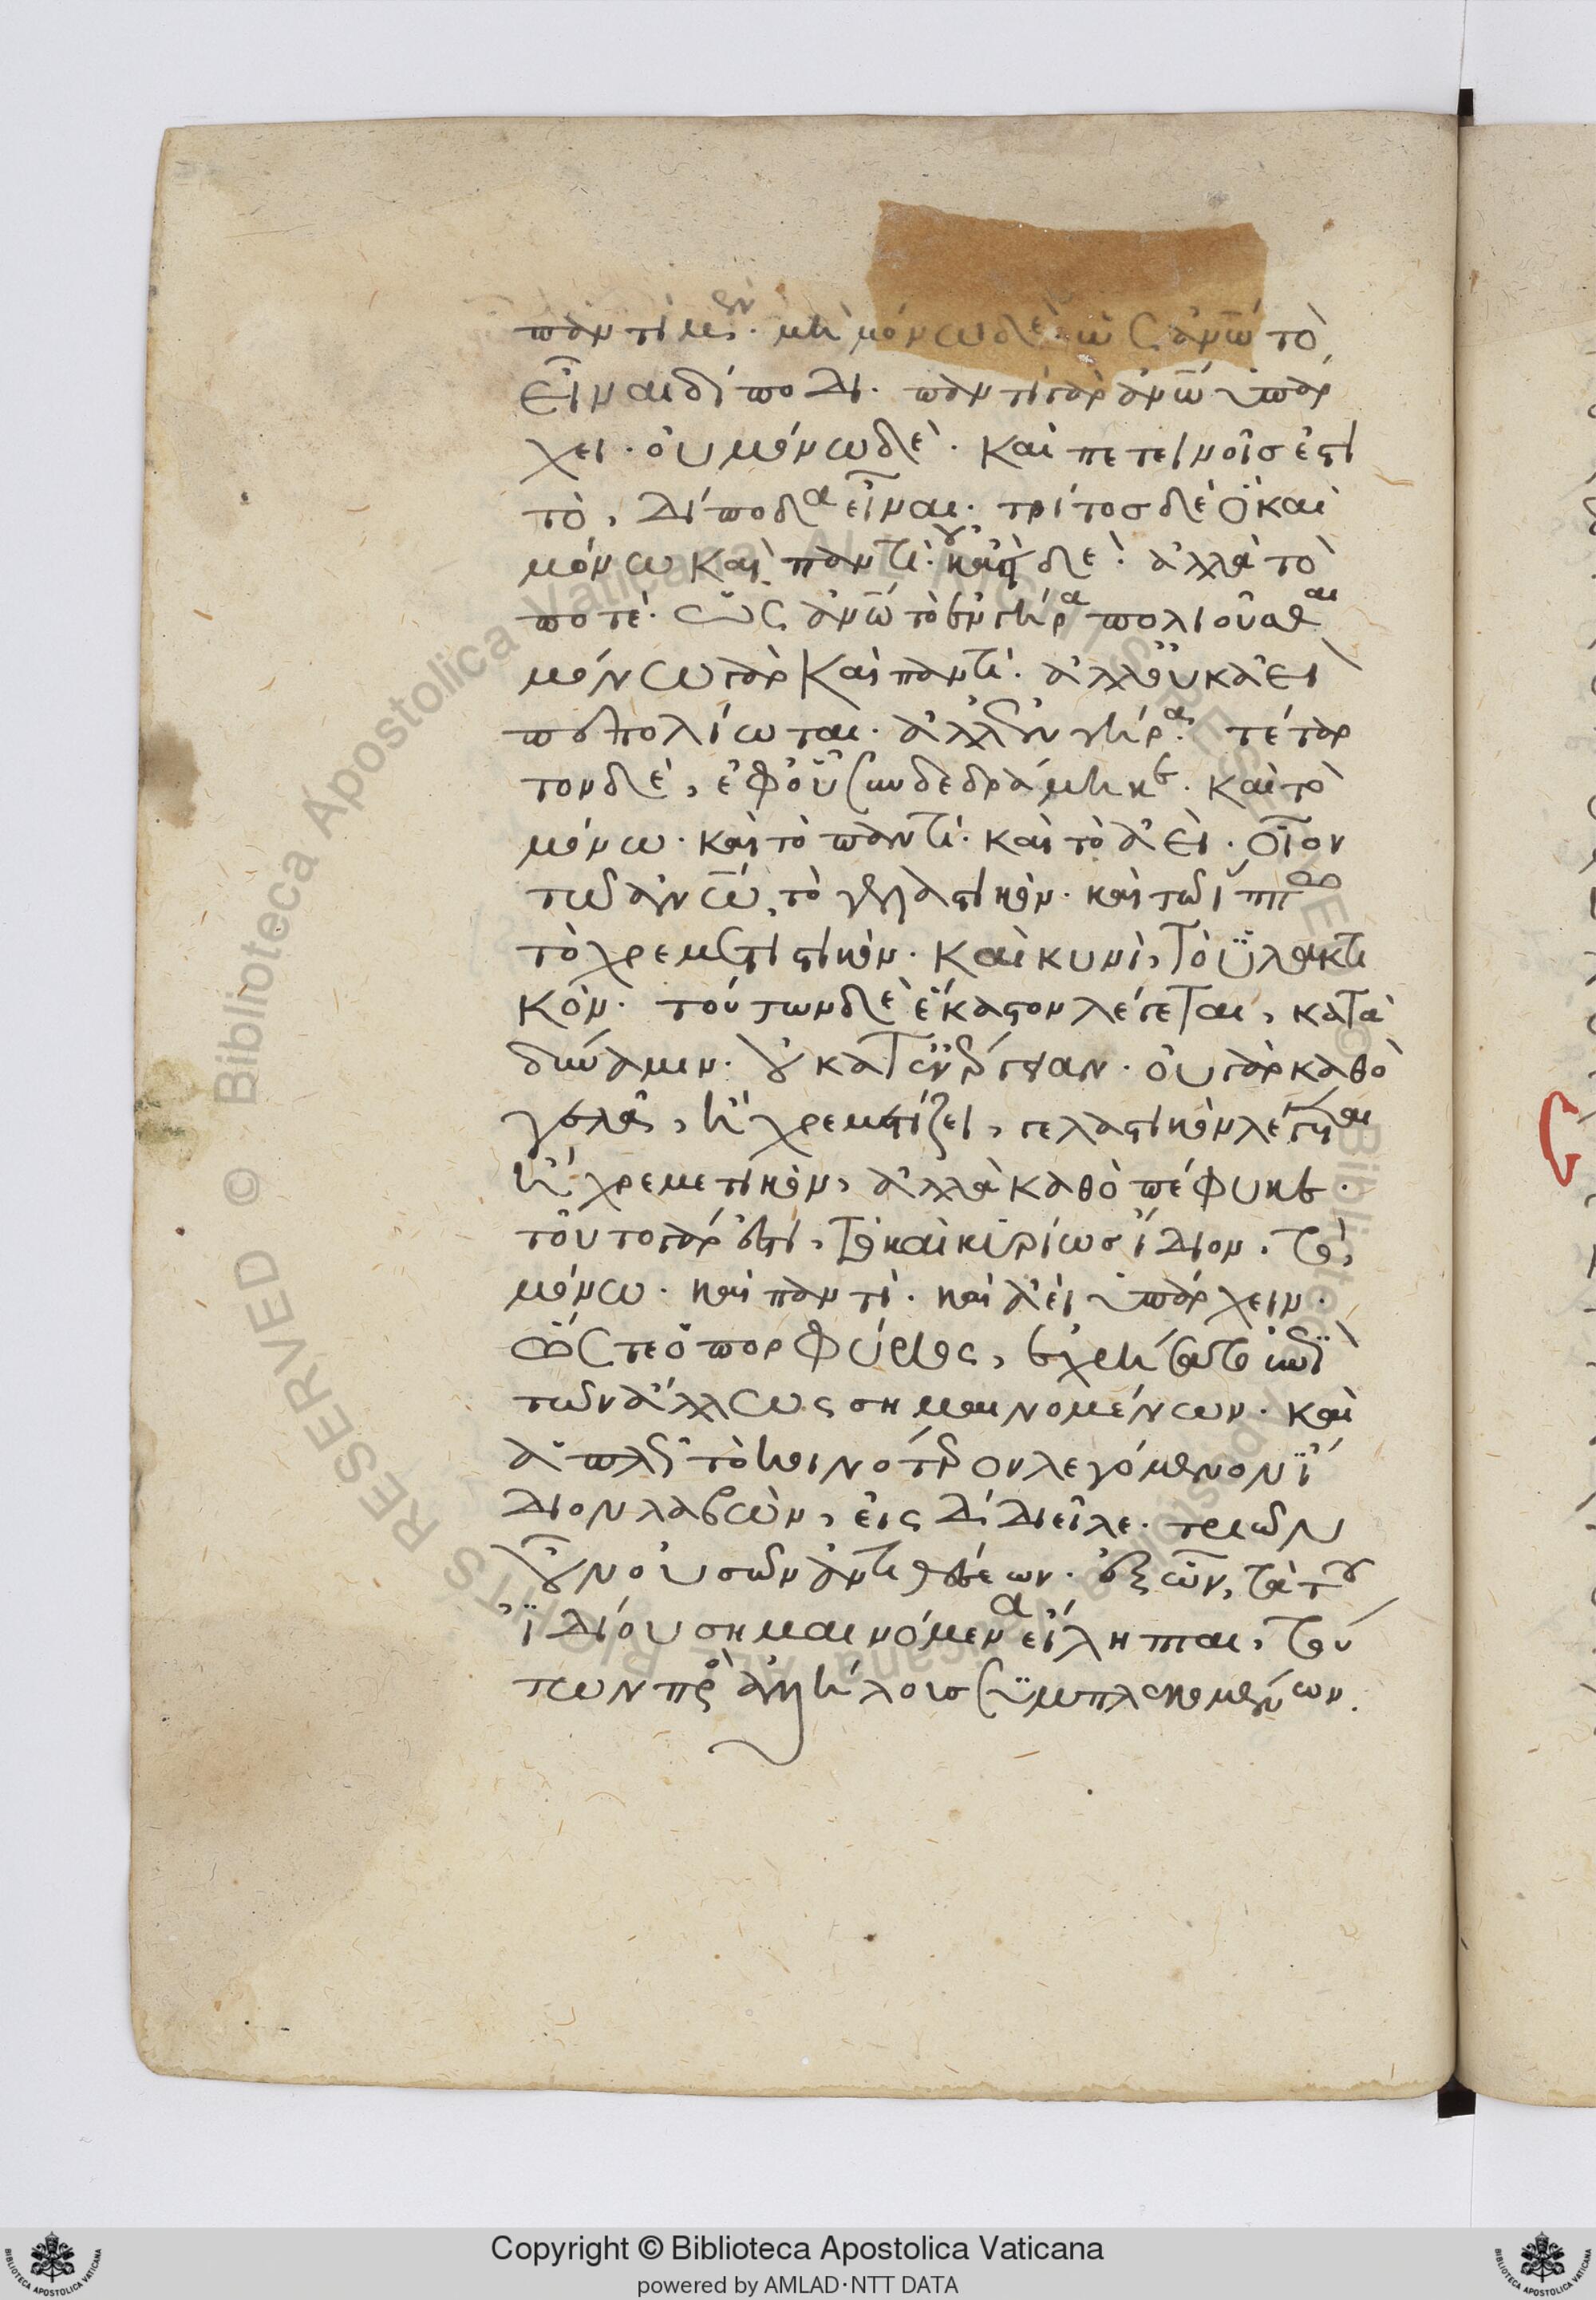 παντὶ μὲν· μὴ μόνω δὲ· ὡς ἀνω̅ τὸ
εἶναι δίποδι· παντὶ γὰρ ἀνω̅ ὑπάρ
χει· οὐ μόνω δὲ· καὶ πετεινοῖσ ἐστὶ
τὸ, δίποδα εἶναι· τρίτοσ δὲ ὃ καὶ
μόνω καὶ παντὶ· δὲ· ἀλλὰ τὸ
ποτέ· ὡς ἀνω̅ τὸ ἐν γήρα πολιοῦσθαι
μόνω γὰρ καὶ παντὶ· ἀλλ' οὐκ ἀεὶ
πεπολίωται· ἀλλ' ἐν γήρα· τέταρ
τον δὲ, ἐφ' οὗ συνδεδράμηκε· καὶ τὸ
μόνω· καὶ τὸ παντὶ· καὶ τὸ ἀεὶ· οἷον
τῶ ἀνω̅, τὸ γελαστικόν· καὶ τῶ ἵππω
τὸ χρεμετιστικόν· καὶ κυνὶ, τὸ ὑλακτι
κόν· τούτων δὲ ἕκαστον λέγεται, κατὰ
δύναμιν· οὐ κατ' ἐνέργειαν· οὐ γὰρ καθὸ
γελᾶ, ἢ χρεμετίζει, γελαστικὸν λέγεται
ἢ χρεμετικὸν, ἀλλὰ καθὸ πέφυκε·
τοῦτο γάρ ἐστι, τὸ καὶ κυρίωσ ἴδιον· τὸ,
μόνω· καὶ παντὶ· καὶ ἀεὶ ὑπάρχειν·
ὥστε ὁ πορφύριος,
τῶν ἄλλως σημαινομένων· καὶ
τὸ κοινότερον λεγόμενον ἴ
διον λαβὼν, εἰς δ' διεῖλε· τριῶν
οὖν οὐσῶν ἀντιθέσεων· ἐξ ὧν, τὰ τοῦ
ἰδίου σημαινόμενα εἴληπται, τού
των πρὸς ἀλλήλουσ συμπλεκομένων.
Copyright © Biblioteca Apostolica Vaticana
powered by AMLAD·NTT DATA